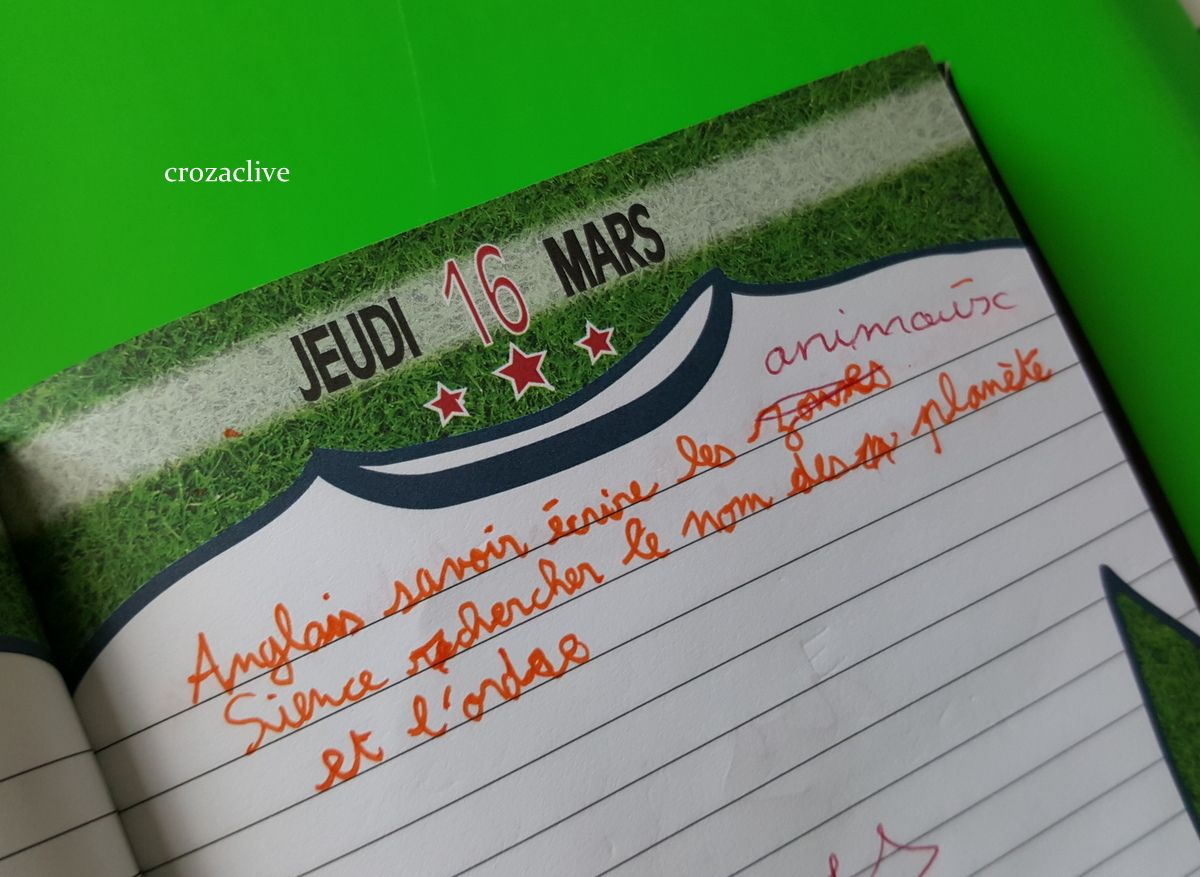 crozaclive
JEUDI 16 MARS
animaux
Anglais savoir écrire les
Sience rechercher le nom des planète
et l'ordre